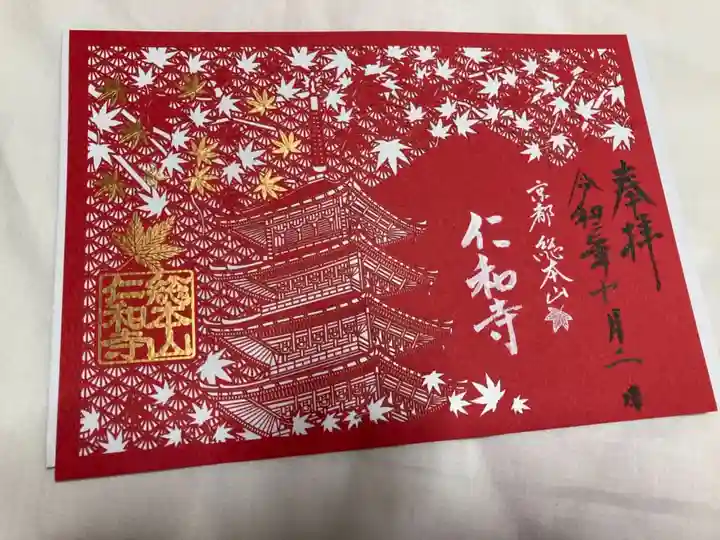 奉拝
令和二年十月二日
京都 総本山
仁和寺
総本山
仁和寺